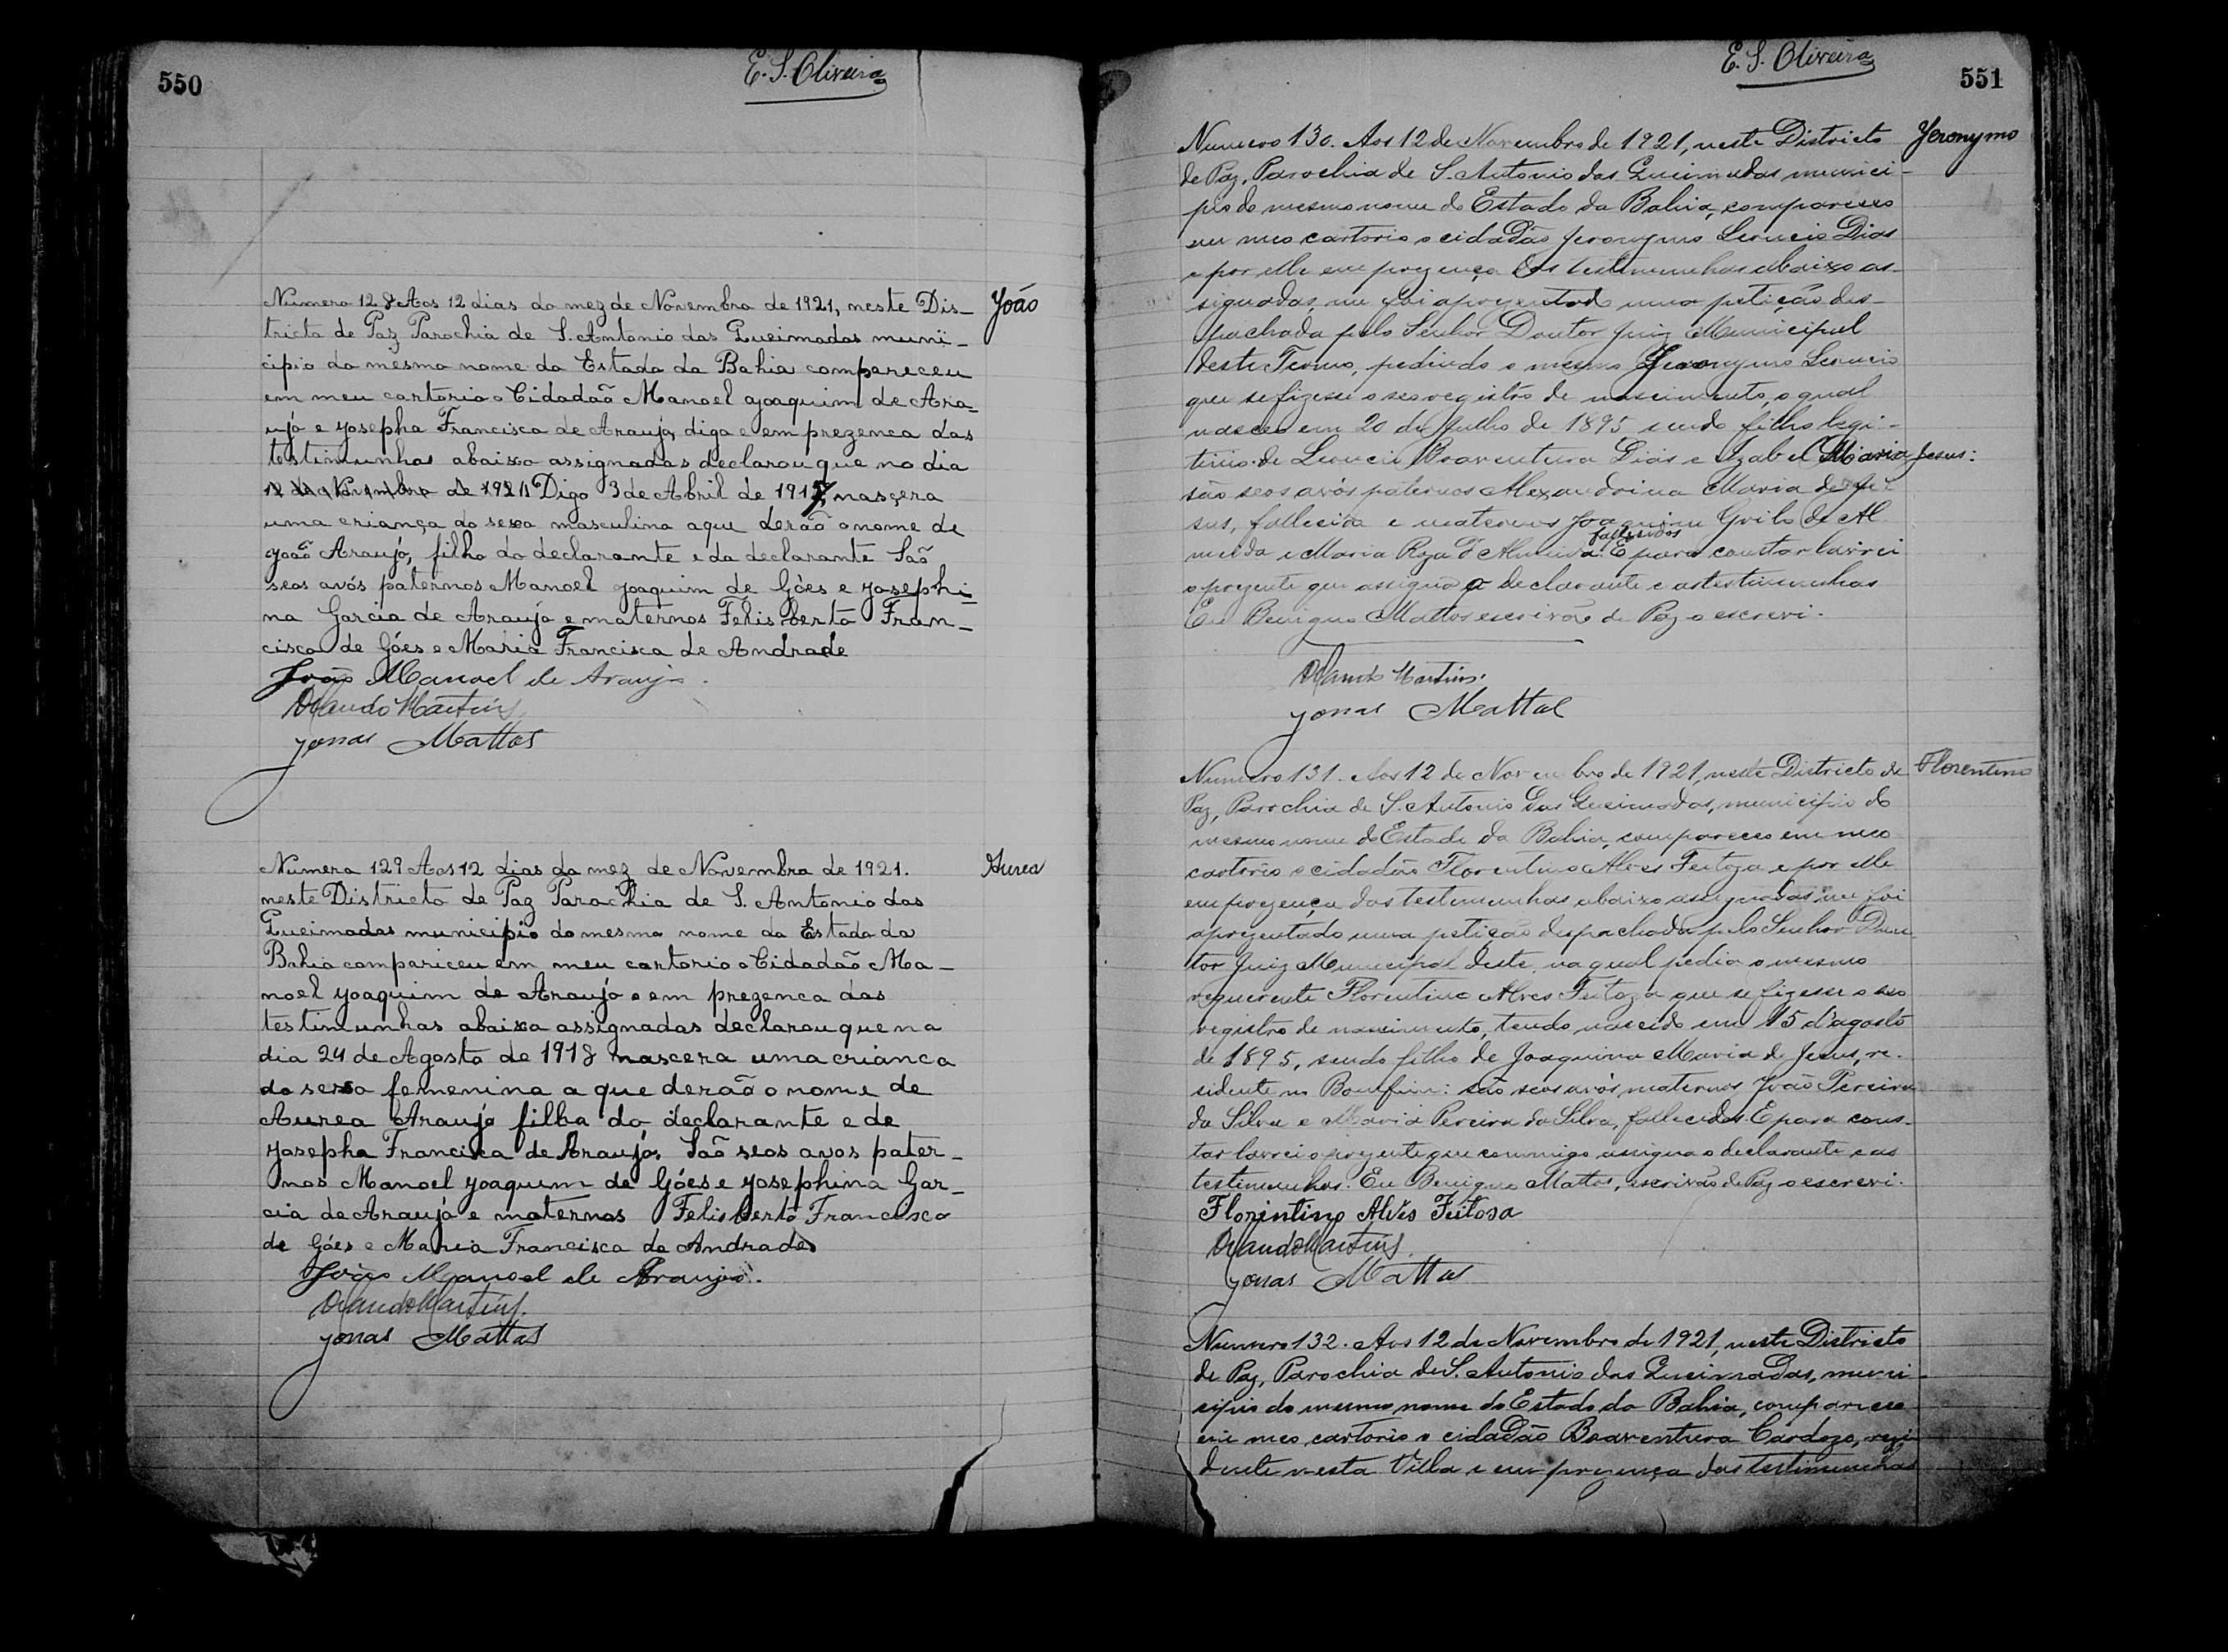 550
E. S. Oliveira
Numero 128 Aos 12 dias do mez de Novembro de 1921, neste Dis-
tricto de Paz Parochia de S. Antonio das Queimadas muni-
cipio do mesmo nome do Estado da Bahia compareceu
em meu cartorio o Cidadão Manoel Joaquim de Ara-
ujo e Josepha Francisca de Araujo, digo e em prezenca das
testimunhas abaixo assignadas declarou que no dia
12 de Novembro de 1921 Digo 3 de Abril de 1917, nascera
uma criança do sexo masculino a que derão o nome de
João Araujo, filho do declarante e da declarante São
seos avós paternos Manoel Joaquim de Góes e Josephi-
na Garcia de Araujo e maternos Felisberto Fran-
cisco de Góes e Maria Francisca de Andrade
João Manoel de Araujo.
Orlando Martins
Jonas Mattos
João
Numero 129 Aos 12 dias do mez de Novembro de 1921.
neste Districto de Paz Parochia de S. Antonio das
Queimadas municipio do mesmo nome do Estado da
Bahia compariceu em meu cartorio o Cidadão Ma-
noel Joaquim de Araujo e em prezenca das
testimunhas abaixo assignadas declarou que na
dia 24 de Agosto de 1918 nascera uma crianca
do sexo femenina a que derão o nome de
Aurea Araujo filha do declarante e de
Josepha Francisca de Araujo. São seos avos pater-
nos Manoel Joaquim de Góes e Josephina Gar-
cia de Araujo e maternos Felisberto Francisco
de Góes e Maria Francisca de Andrade
João Manoel de Araujo.
Orlando Martins.
Jonas Mattos
Aurea
E. S. Oliveira
551
Numero 130. Aos 12 de Novembro de 1921, neste Districto
de Paz, Parochia de S. Antonio das Queimadas munici-
pio do mesmo nome do Estado da Bahia, compareceo
em meo cartorio o cidadão Jeronymo Leoncio Dias
e por elle em prezença das testimunhas abaixo as-
signadas, me foi aprezentado uma petição des-
pachada pelo Senhor Doutor Juiz Municipal
deste Termo, pedindo o mesmo Jeronymo Leoncio
que se fizesse o seo registro de nascimento, o qual
nasceo em 20 de Julho de 1895 sendo filho legi-
timo de Leoncio Boaventura Dias e Izabel Maria Jesus:
são seos avós paternos Alexandrina Maria de Je-
sus, fallecida e maternos Joaquim de Al
meida e Maria Roza d'Almeida fallecidos. E para constar lavrei
o prezente que assigna o declarante e as testimunhas
Eu Benigno Mattos escrivão de Paz o escrevi.
Orlando Martins.
Jonas Mattos
Jeronymo
Numero 131. Aos 12 de Novembro de 1921, neste Districto de
Paz, Parochia de S. Antonio das Queimadas, municipio do
mesmo nome do Estado da Bahia, compareceo em meo
cartorio o cidadão Florentino Alves Feitoza e por elle
em prezença das testimunhas abaixo assignadas me foi
aprezentado uma petição despachada pelo Senhor Dou-
tor Juiz Municipal deste, na qual pedia o mesmo
requerente Florentino Alves Feitoza que se fizesse o seo
registro de nascimento, tendo nascido em 15 d'agosto
de 1895, sendo filho de Joaquina Maria de Jesus, re-
sidente no Bomfim: são seos avós maternos João Pereira
da Silva e Maria Pereira da Silva, fallecidos. E para cons-
tar lavrei o prezente que commigo assigna o declarante e as
testimunhas. Eu Benigno Mattos, escrivão de Paz o escrevi.
Florintino Alves Feitosa
Orlando Martins.
Jonas Mattos
Florentino
Numero 132. Aos 12 de Novembro de 1921, neste Districto
de Paz, Parochia de S. Antonio das Queimadas, muni-
cipio do mesmo nome do Estado da Bahia, compareceo
em meo cartorio o cidadão Boaventura Cardozo, rezi
dente nesta Villa e em prezença das testimunhas